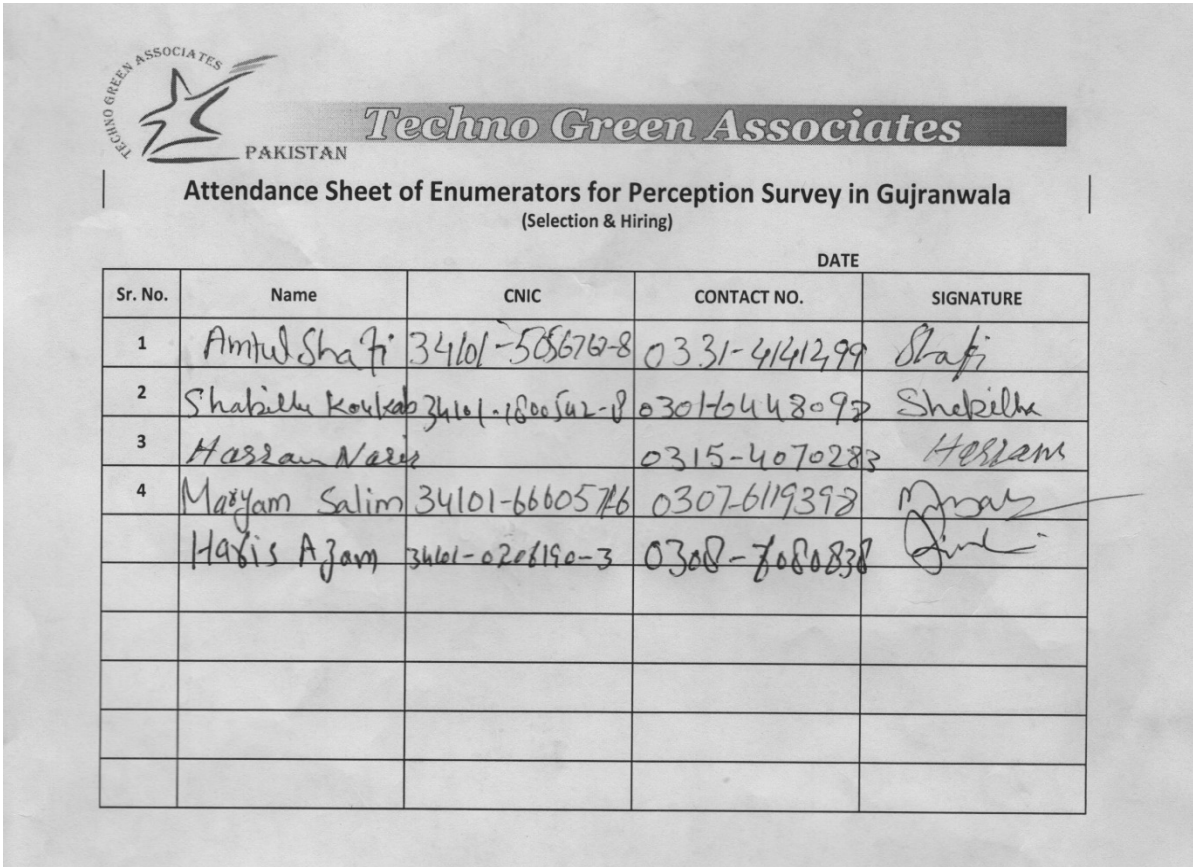 TECHNO GREEN ASSOCIATES
PAKISTAN
Techno Green Associates
Attendance Sheet of Enumerators for Perception Survey in Gujranwala
(Selection & Hiring)
DATE
Sr. No. Name CNIC CONTACT NO. SIGNATURE
1 Amtul Shafi 34101-5056762-8 0331-4141299 Shafi
2 Shakilla Koukab 34101-1800542-8 Shakilla
3 Hassan 0315-4070283 Hassan
4 Maryam Salim 0307-6119398
Haris Azam 34101-0206190-3 0308-7080838